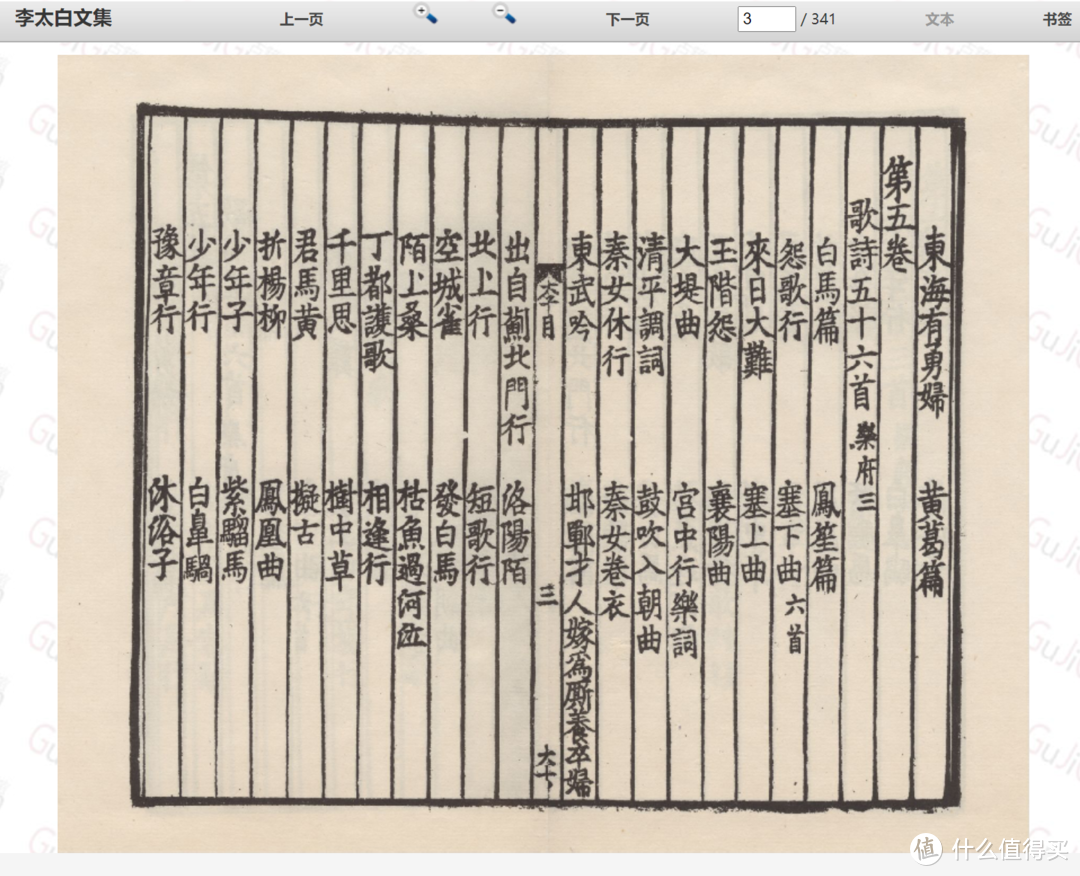 李太白文集 上一页 下一页 3 / 341 文本 书签
東海有勇婦 黄葛篇
第五卷
歌詩五十六首 樂府三
白馬篇 鳳笙篇
怨歌行 塞下曲六首
來日大難 塞上曲
玉階怨 襄陽曲
大堤曲 宫中行樂詞
清平調詞 鼓吹入朝曲
秦女休行 秦女卷衣
東武吟 邯鄲才人嫁爲厮養卒婦
目 三
出自薊北門行 洛陽陌
北上行 短歌行
空城雀 發白馬
陌上桑 枯魚過河泣
丁都護歌 相逢行
千里思 樹中草
君馬黄 擬古
折楊柳 鳳凰曲
少年子 紫騮馬
少年行 白鼻騧
豫章行 沐浴子
值 什么值得买